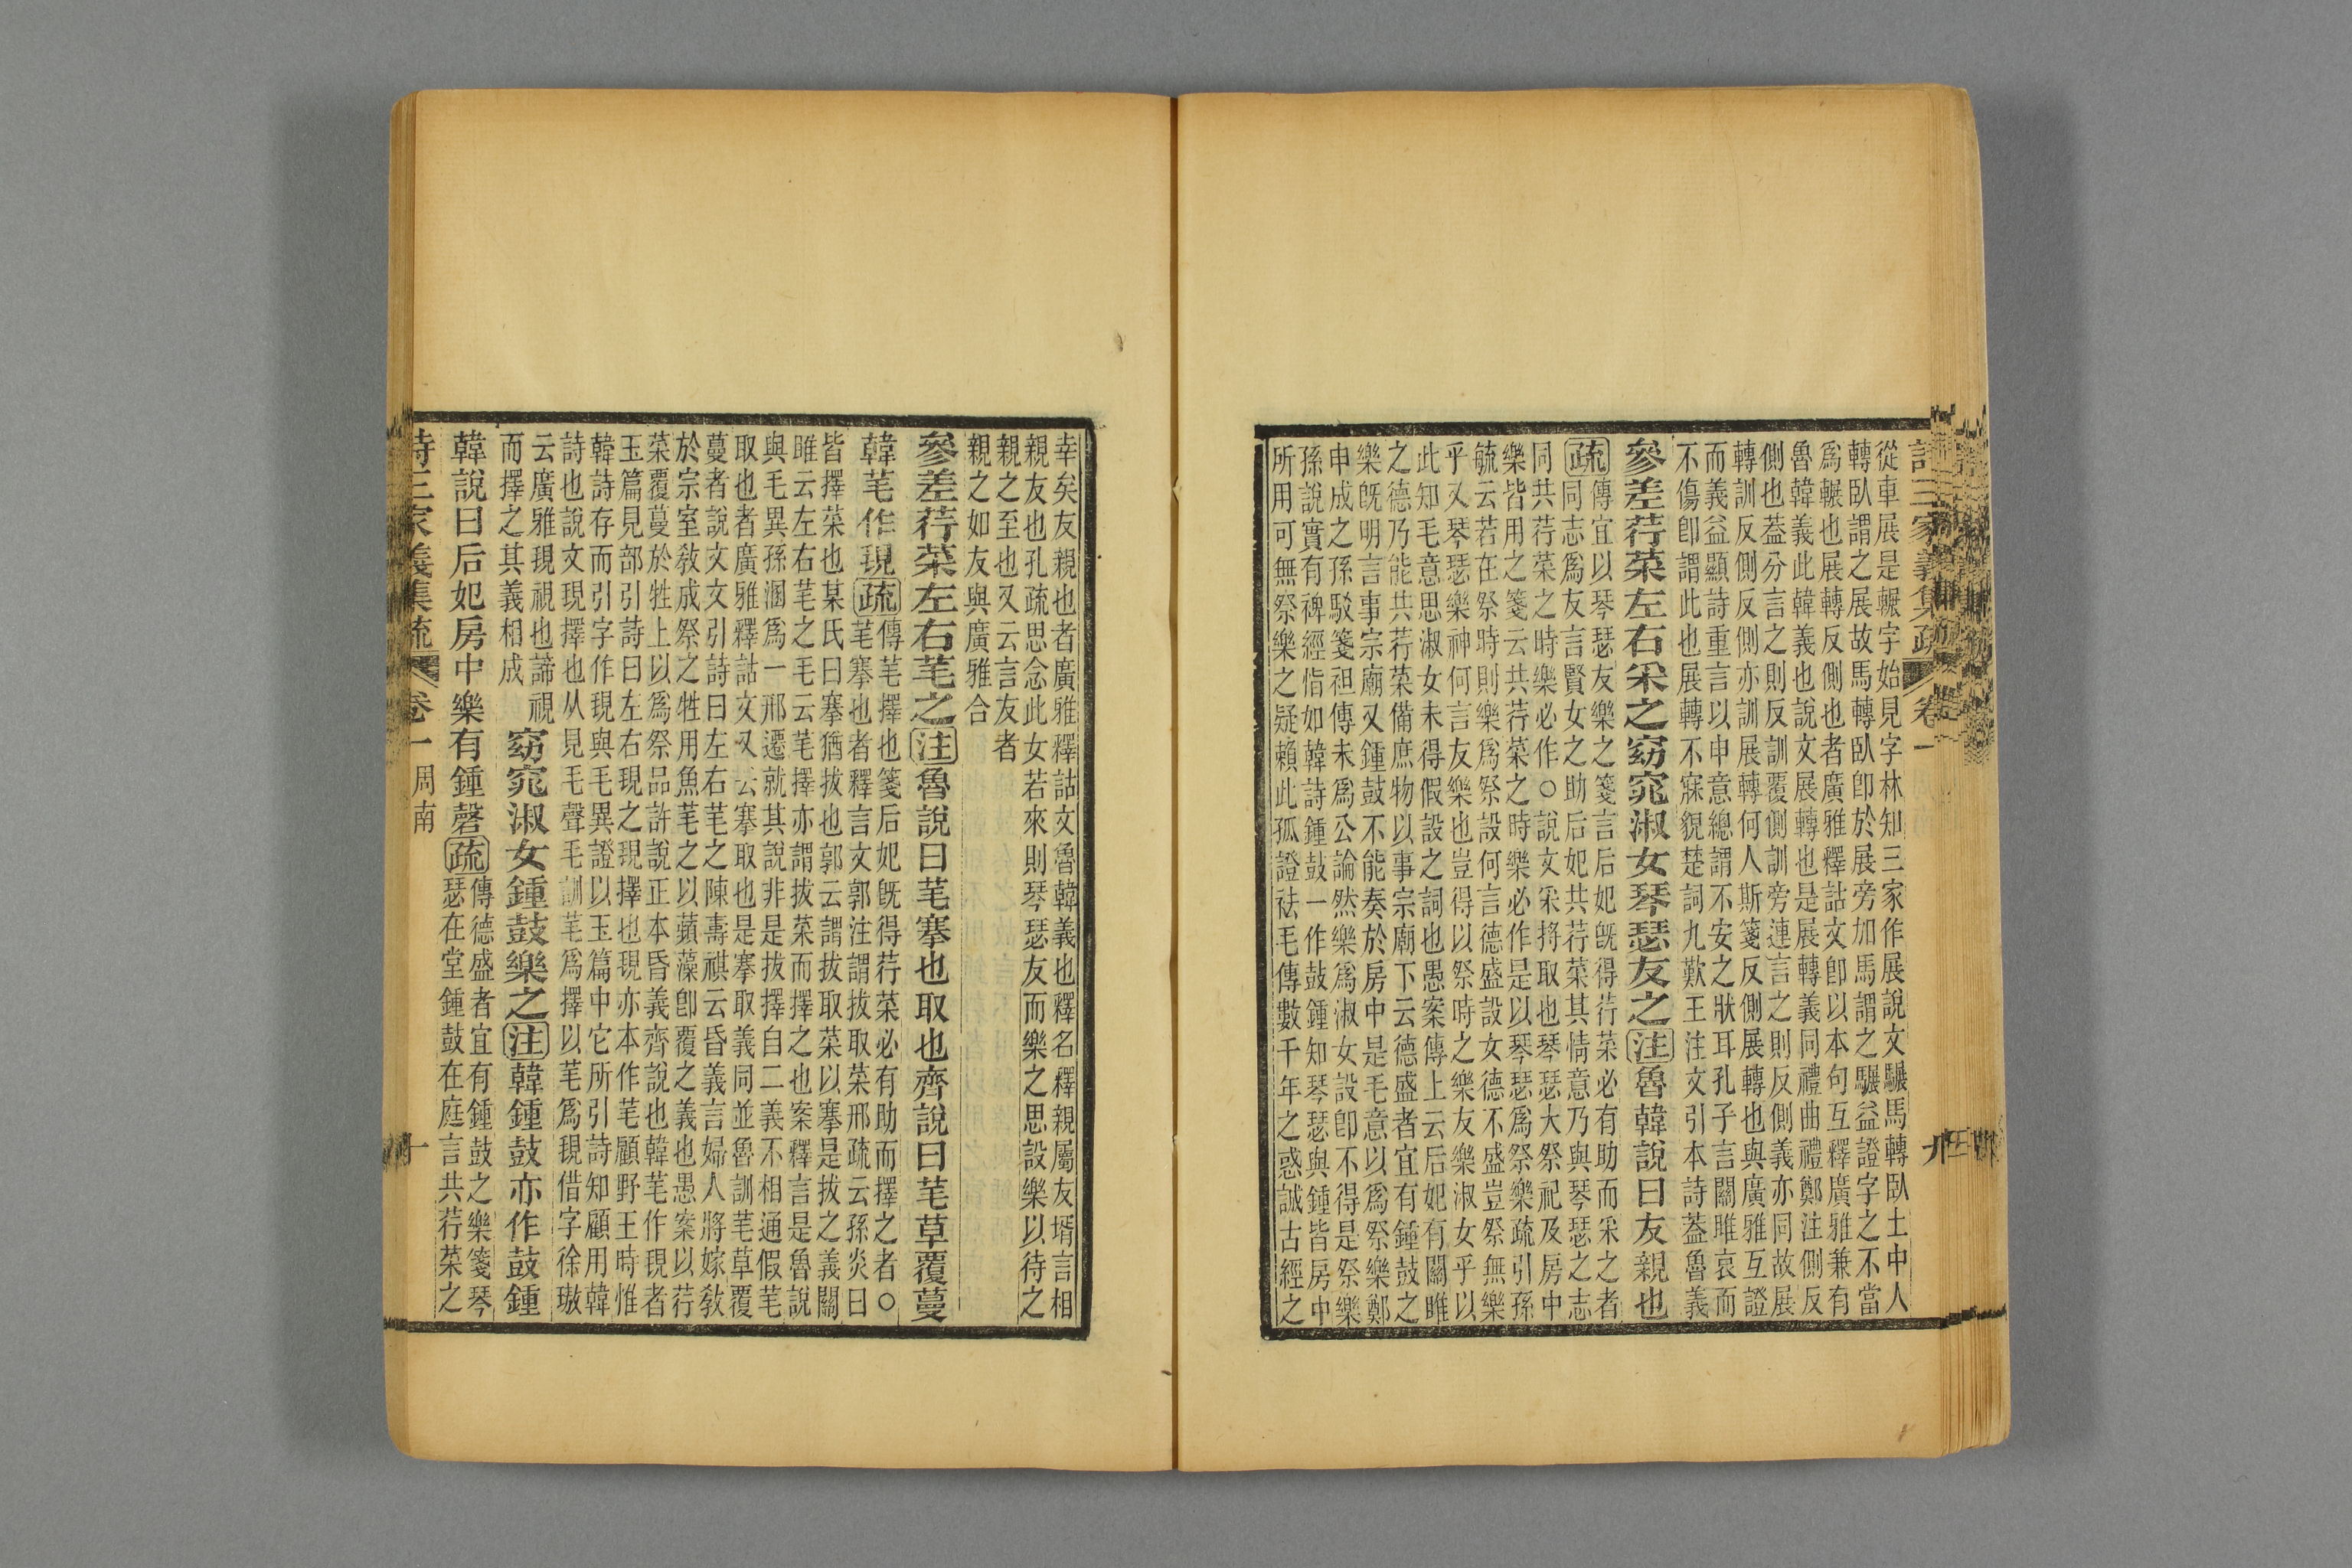 詩三家義集疏 卷一 九
從車展是輾字始見字林知三家作展說文䮗馬轉臥土中人
轉臥謂之展故馬轉臥卽於展旁加馬謂之䮗益證字之不當
爲輾也展轉反側也者廣雅釋詁文卽以本句互釋廣雅兼有
魯韓義此韓義也說文展轉也是展轉義同禮曲禮鄭注側反
側也葢分言之則反訓覆側訓旁連言之則反側義亦同故展
轉訓反側反側亦訓展轉何人斯箋反側展轉也與廣雅互證
而義益顯詩重言以申意總謂不安之狀耳孔子言關雎哀而
不傷卽謂此也展轉不寐貌楚詞九歎王注文引本詩葢魯義
參差荇菜左右采之窈窕淑女琴瑟友之注魯韓說曰友親也
疏傳宜以琴瑟友樂之箋言后妃旣得荇菜必有助而采之者
同志爲友言賢女之助后妃共荇菜其情意乃與琴瑟之志
同共荇菜之時樂必作○說文采捋取也琴瑟大祭祀及房中
樂皆用之箋云共荇菜之時樂必作是以琴瑟爲祭樂疏引孫
毓云若在祭時則樂爲祭設何言德盛設女德不盛豈祭無樂
乎又琴瑟樂神何言友樂也豈得以祭時之樂友樂淑女乎以
此知毛意思淑女未得假設之詞也愚案傳上云后妃有關雎
之德乃能共荇菜備庶物以事宗廟下云德盛者宜有鍾鼓之
樂旣明言事宗廟又鍾鼓不能奏於房中是毛意以爲祭樂鄭
申成之孫駁箋袒傳未爲公論然樂爲淑女設卽不得是祭樂
孫說實有裨經恉如韓詩鍾鼓一作鼓鍾知琴瑟與鍾皆房中
所用可無祭樂之疑賴此孤證祛毛傳數千年之惑誠古經之
幸矣友親也者廣雅釋詁文魯韓義也釋名釋親屬友壻言相
親友也孔疏思念此女若來則琴瑟友而樂之思設樂以待之
親之至也又云言友者
親之如友與廣雅合
參差荇菜左右芼之注魯說曰芼搴也取也齊說曰芼草覆蔓
韓芼作覒疏傳芼擇也箋后妃旣得荇菜必有助而擇之者○
芼搴也者釋言文郭注謂拔取菜邢疏云孫炎曰
皆擇菜也某氏曰搴猶拔也郭云謂拔取菜以搴是拔之義關
雎云左右芼之毛云芼擇亦謂拔菜而擇之也案釋言是魯說
與毛異孫溷爲一邢遷就其說非是拔擇自二義不相通假芼
取也者廣雅釋詁文又云搴取也是搴取義同並魯訓芼草覆
蔓者說文文引詩曰左右芼之陳壽祺云昏義言婦人將嫁敎
於宗室敎成祭之牲用魚芼之以蘋藻卽覆之義也愚案以荇
菜覆蔓於牲上以爲祭品許說正本昏義齊說也韓芼作覒者
玉篇見部引詩曰左右覒之覒擇也覒亦本作芼顧野王時惟
韓詩存而引字作覒與毛異證以玉篇中它所引詩知顧用韓
詩也說文覒擇也从見毛聲毛訓芼爲擇以芼爲覒借字徐璈
云廣雅覒視也諦視
而擇之其義相成
窈窕淑女鍾鼓樂之注韓鍾鼓亦作鼓鍾
韓說曰后妃房中樂有鍾磬疏傳德盛者宜有鍾鼓之樂箋琴
瑟在堂鍾鼓在庭言共荇菜之
詩三家義集疏 卷一 周南 十